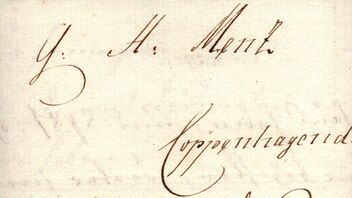 G: H: Mentz
Coppenhagend